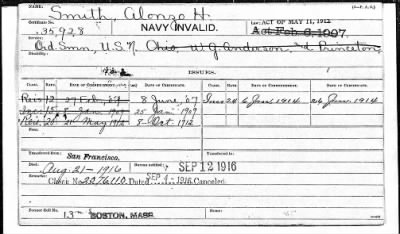 NAME. Smith, Alonzo H.
35,928 NAVY INVALID. LAW: ACT OF MAY 11, 1912
Act Feb. 6, 1907.
Ord Smn, U.S.N. Ohio, W G Anderson, Princeton
ISSUES.
CLASS. RATE. DATE OF COMMENCEMENT. DATE OF CERTIFICATE. CLASS. RATE. DATE OF COMMENCEMENT. DATE OF CERTIFICATE.
12 27 Feb, 07 8 June, 07 24 6 June 1914 26 June 1914
15 Jan 1909 25 Jan 1909
20 21 May 1912 8 Oct. 1912
Transferred from San Francisco.
Died Aug. 21-1916 Bureau notified SEP 12 1916
Remarks: Check No. 2276110 Dated Sep 4-1916 Canceled.
Transferred to
Former Roll No. 13 BOSTON, MASS.